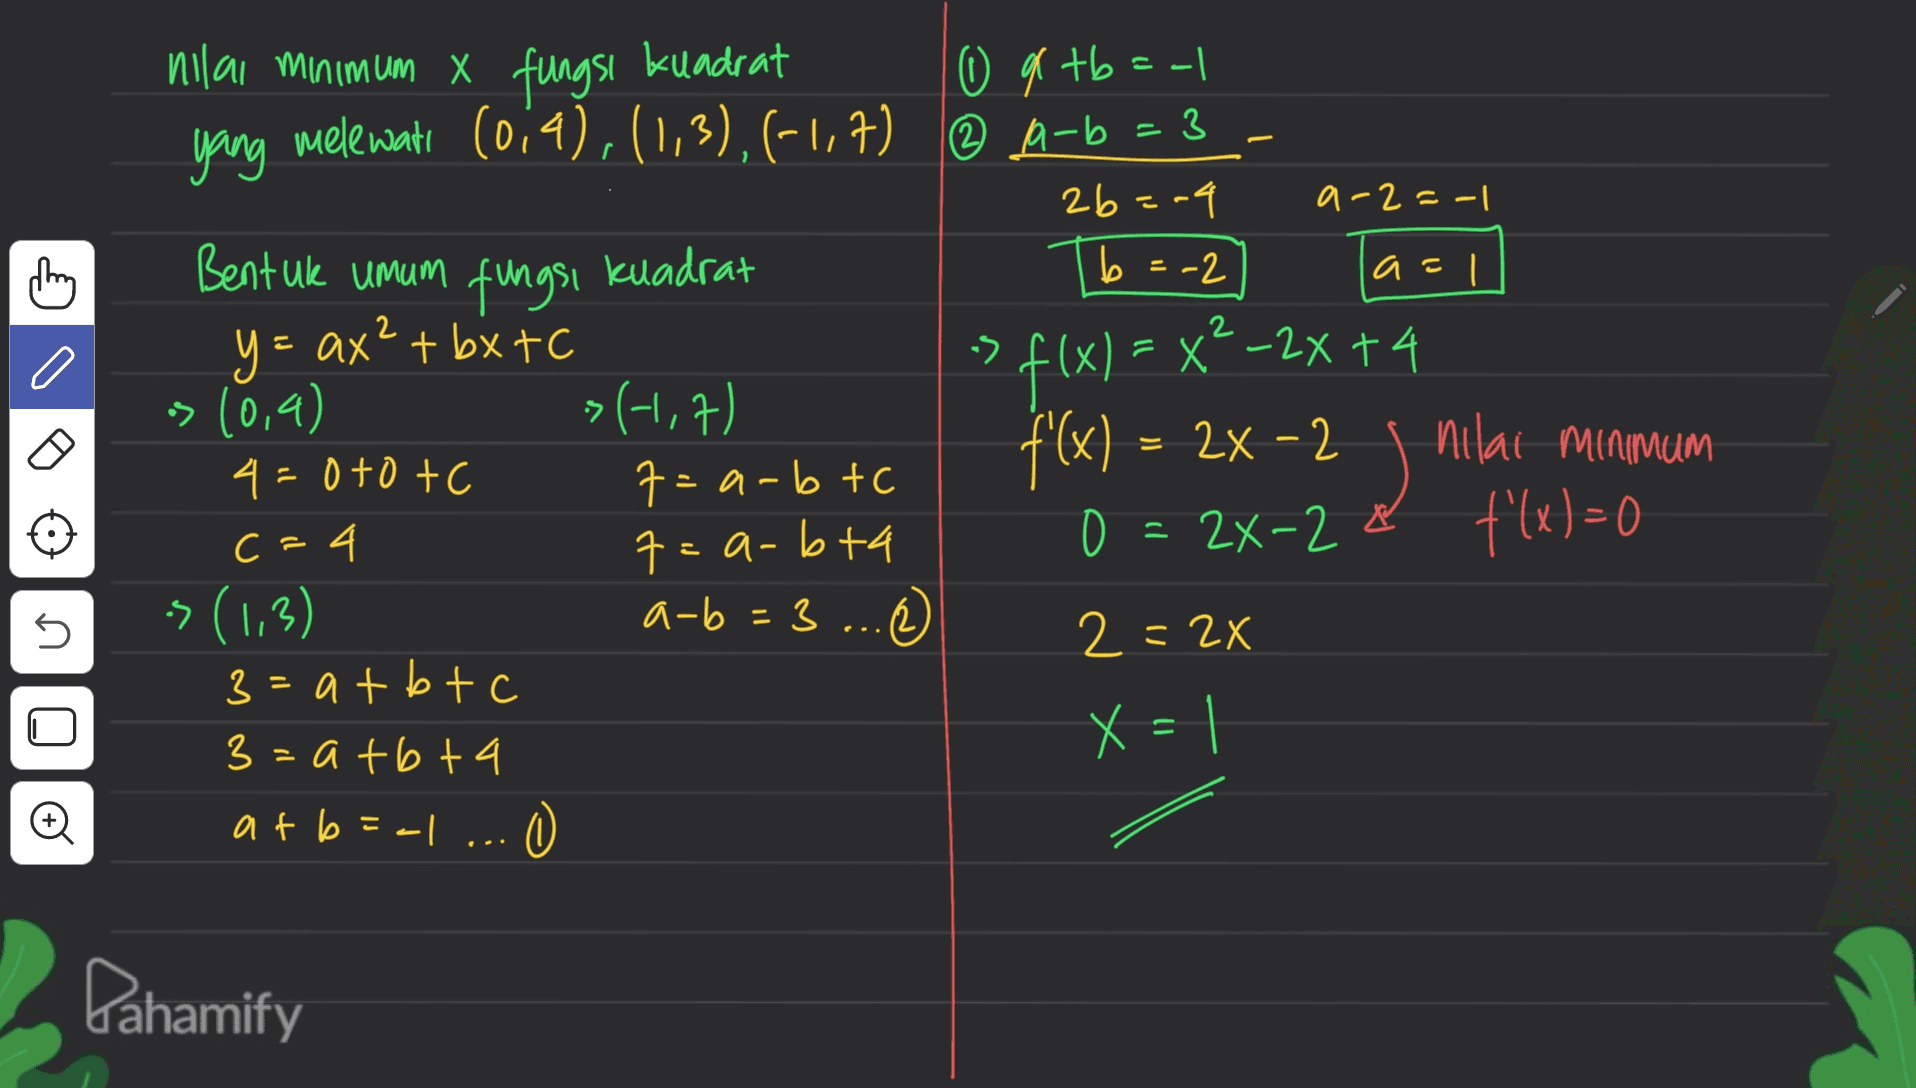 nilai minimum x fungsi kuadrat
yang melewati (0,4), (1,3), (-1,7)
Bentuk umum fungsi kuadrat
y = ax² + bx + c
→ (0,4)
4 = 0 + 0 + c
c = 4
→ (1,3)
3 = a + b + c
3 = a + b + 4
a + b = -1 ... ①
→ (-1,7)
7 = a - b + c
7 = a - b + 4
a - b = 3 ... ②
① a + b = -1
② a - b = 3 -
2b = -4
b = -2
a - 2 = -1
a = 1
→ f(x) = x² - 2x + 4
f'(x) = 2x - 2
0 = 2x - 2
nilai minimum
f'(x) = 0
2 = 2x
x = 1
Pahamify